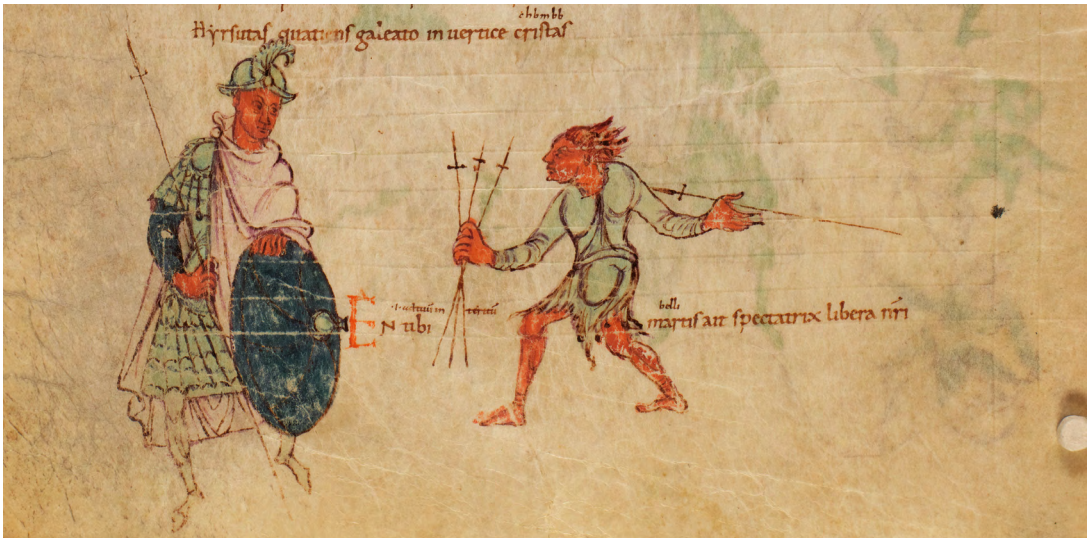 chbmbb
Hyrsutas quatiens galeato in uertice cristas
belli
EN tibi martis ait spectatrix libera nr̄i